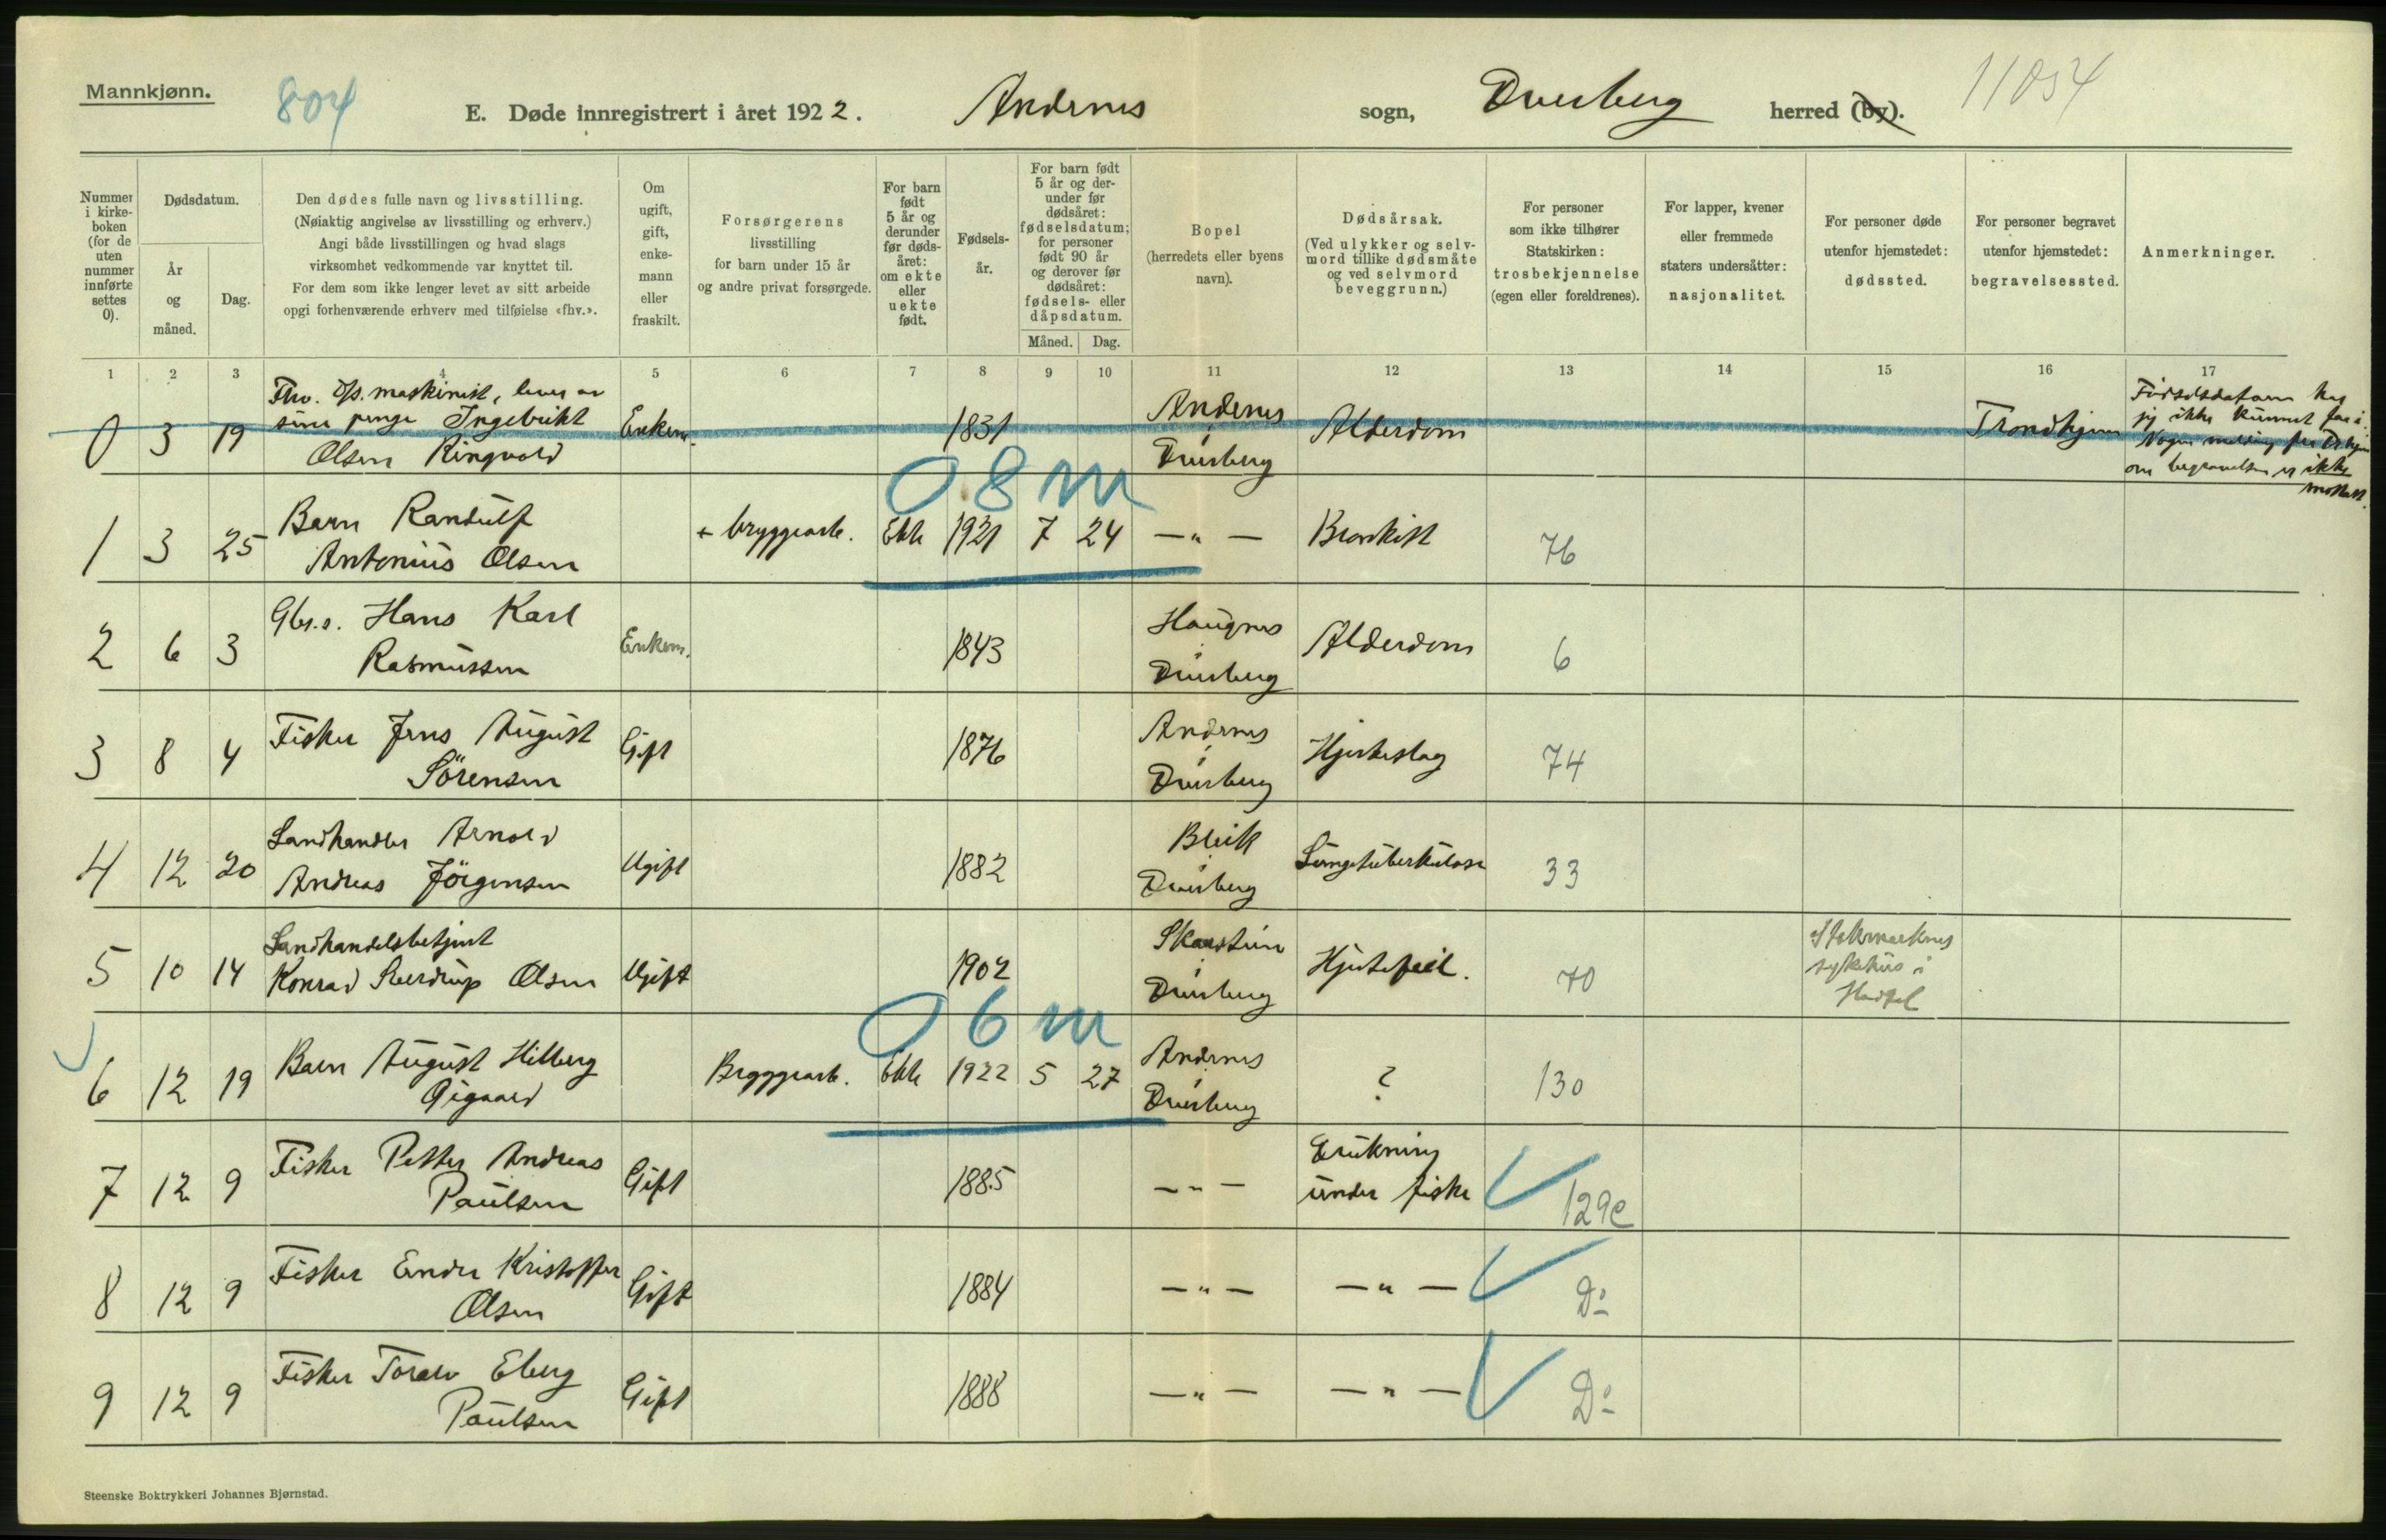 Mannkjønn.
804
E. Døde innregistrert i året 1922.
Andenes
sogn,
Dverberg
herred (by).
11054
Nummer i kirke-boken (for de uten nummer innførte settes 0).
Dødsdatum.
År og måned.
Dag.
Den dødes fulle navn og livsstilling.
(Nøiaktig angivelse av livsstilling og erhverv.)
Angi både livsstillingen og hvad slags
virksomhet vedkommende var knyttet til.
For dem som ikke lenger levet av sitt arbeide
opgi forhenværende erhverv med tilføielse «fhv.».
Om ugift, gift, enke-mann eller fraskilt.
Forsørgerens
livsstilling
for barn under 15 år
og andre privat forsørgede.
For barn født 5 år og derunder før døds-året: om ekte eller uekte født.
Fødsels-år.
For barn født 5 år og der-under før dødsåret: fødselsdatum; for personer født 90 år og derover før dødsåret: fødsels- eller dåpsdatum.
Måned.
Dag.
Bopel
(herredets eller byens
navn).
Dødsårsak.
(Ved ulykker og selv-
mord tillike dødsmåte
og ved selvmord
beveggrunn.)
For personer
som ikke tilhører
Statskirken:
trosbekjennelse
(egen eller foreldrenes).
For lapper, kvener
eller fremmede
staters undersåtter:
nasjonalitet.
For personer døde
utenfor hjemstedet:
dødssted.
For personer begravet
utenfor hjemstedet:
begravelsessted.
Anmerkninger.
1 2 3 4 5 6 7 8 9 10 11 12 13 14 15 16 17
Fhv. D/s. maskinist, lever av
sine penge Ingebrikt
Olsen Ringvold
0 3 19 Enkem. 1831
Andenes
Dverberg
Alderdom
Trondhjem
Fødselsdatoen har
jeg ikke kunnet faa i.
Nogen melding fra Tr.hjem
om begravelsen er ikke
mottatt.
08 m
1 3 25
Barn Randulf
Antonius Olsen
+ bryggearb. Ekte 1921 7 24 — " — Bronkit 76
2 6 3
Gbr.s. Hans Karl
Rasmussen
Enkem. 1843
Haugnes
Dverberg
Alderdom 6
3 8 4
Fisker Jens August
Sörensen
Gift 1876
Andenes
Dverberg
Hjerteslag 74
4 12 20
Landhandler Arnold
Andreas Jörgensen
Ugift 1882
Bleik
Dverberg
Lungetuberkulose 33
5 10 14
Landhandelsbetjent
Konrad Sverdrup Olsen
Ugift 1902
Skarstein
Dverberg
Hjertefeil. 70
Stokmarknes
sykehus i
Hadsel
06 m
6 12 19
Barn August Hilberg
Bryggearb. Ekte 1922 5 27
Andenes
Dverberg
? 130
7 12 9
Fisker Petter Andreas
Paulsen
Gift 1885 — " —
Drukning
under fiske
129e
8 12 9
Fisker Ender Kristoffer
Olsen
Gift 1884 — " — — " — Do
9 12 9
Fisker Toralv Eberg
Paulsen
Gift 1888 — " — — " — Do
Steenske Boktrykkeri Johannes Bjørnstad.